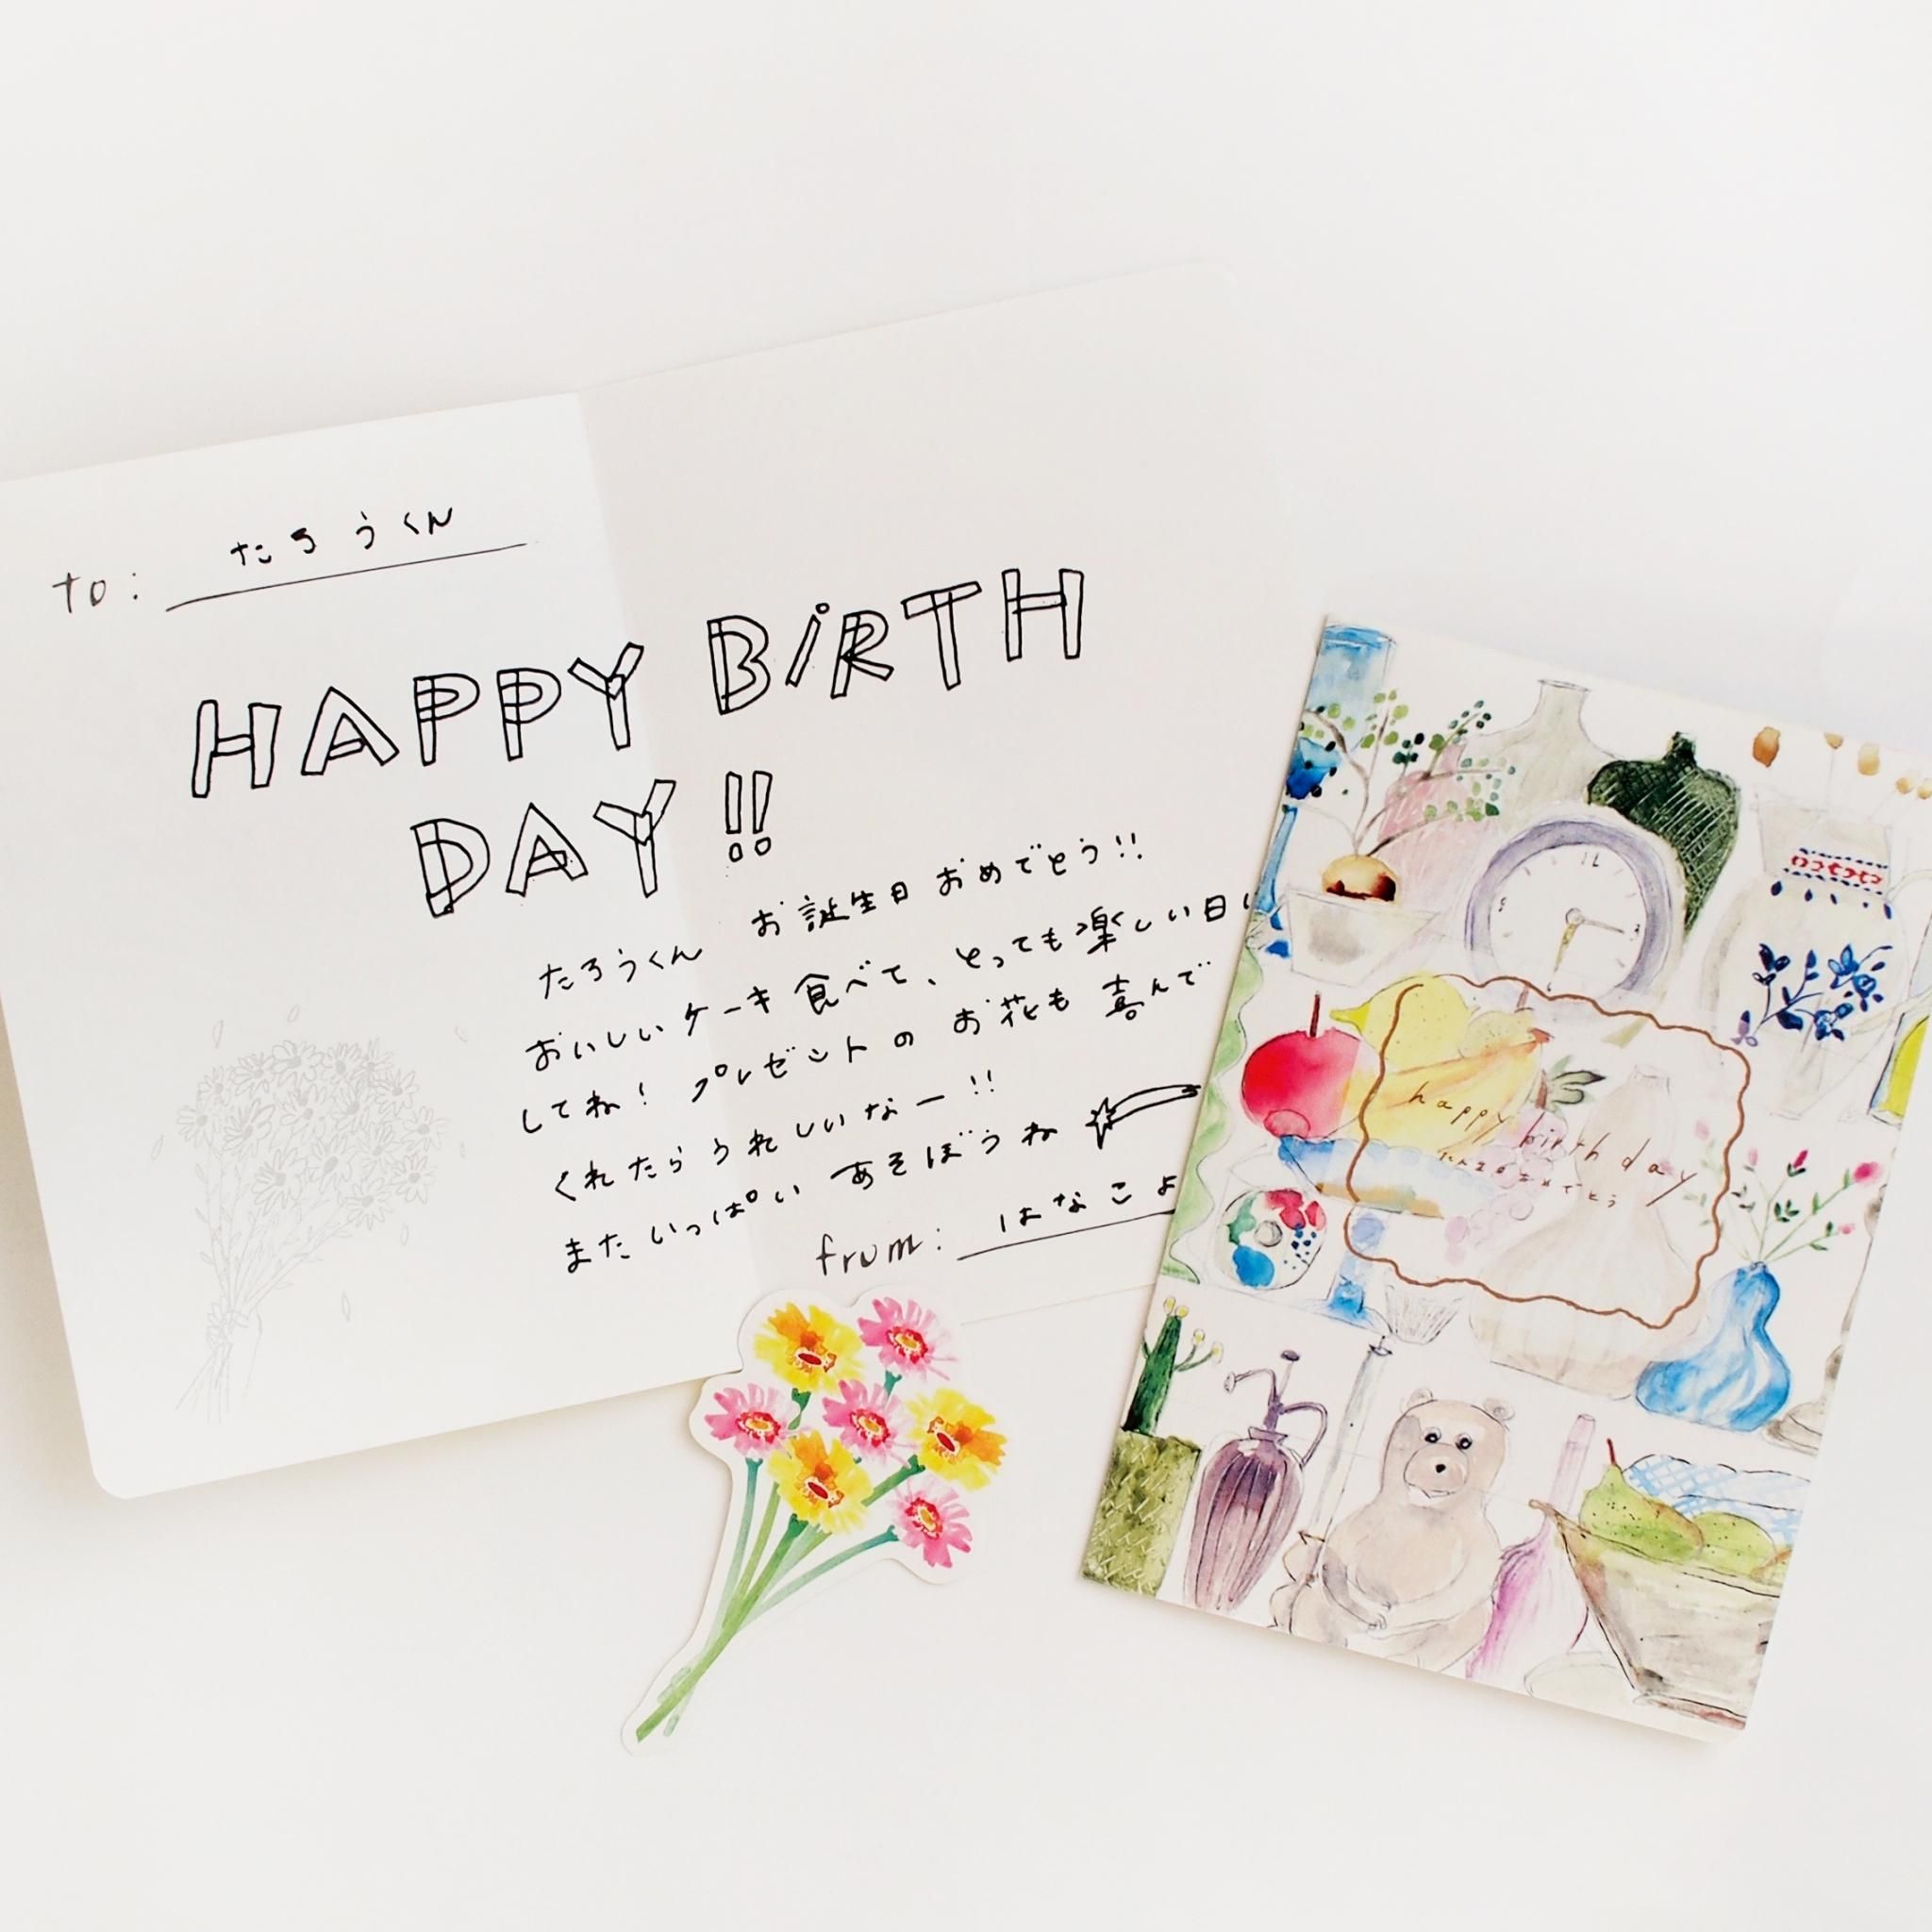 to: たろうくん
HAPPY BiRTH
DAY!!
たろうくん お誕生日 おめでとう!!
おいしいケーキ食べて、とっても楽しい日に
してね! プレゼントの お花も 喜んで
くれたらうれしいなー!!
またいっぱい あそぼうね
from: はなこよ
happy birthday
おめでとう